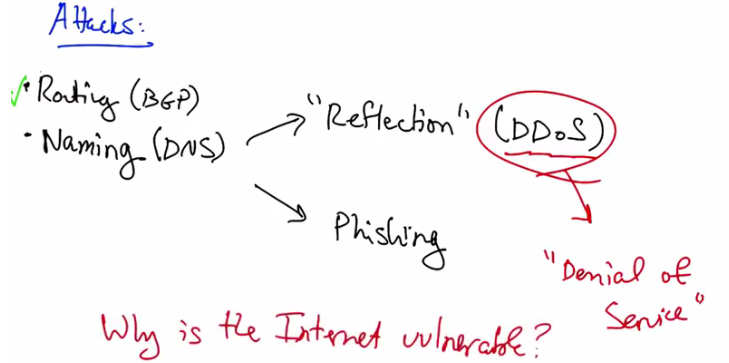 Attacks:
· Routing (BGP)
· Naming (DNS)
"Reflection" (DDoS)
Phishing
"Denial of
Service"
Why is the Internet vulnerable?